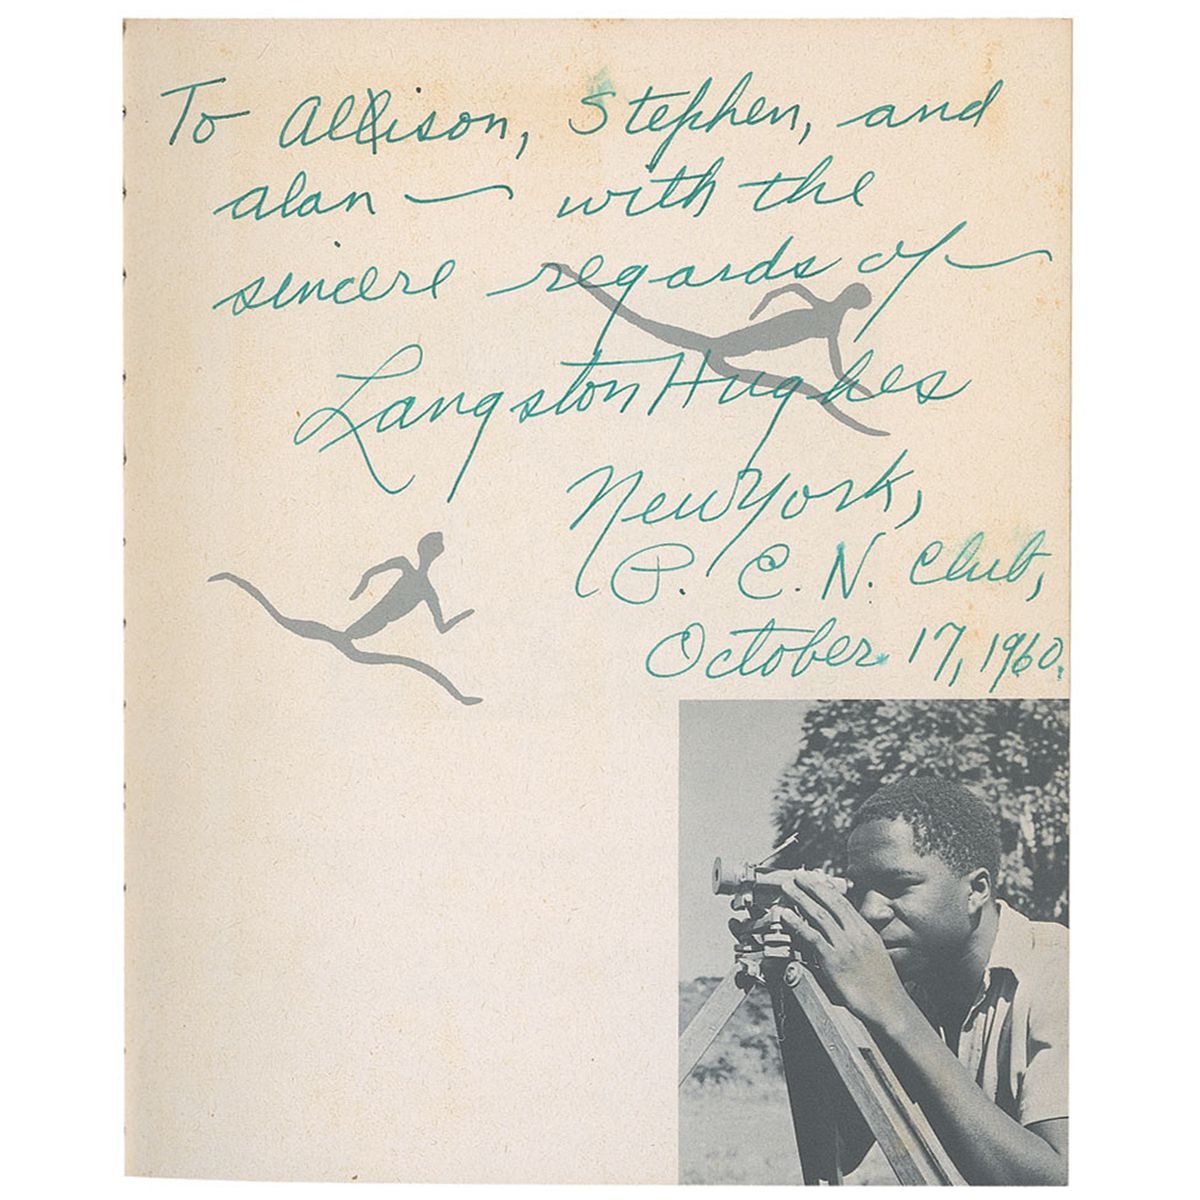 To Allison, Stephen, and
alan — with the
sincere regards of —
Langston Hughes
New York,
P. E. N. Club,
October 17, 1960.